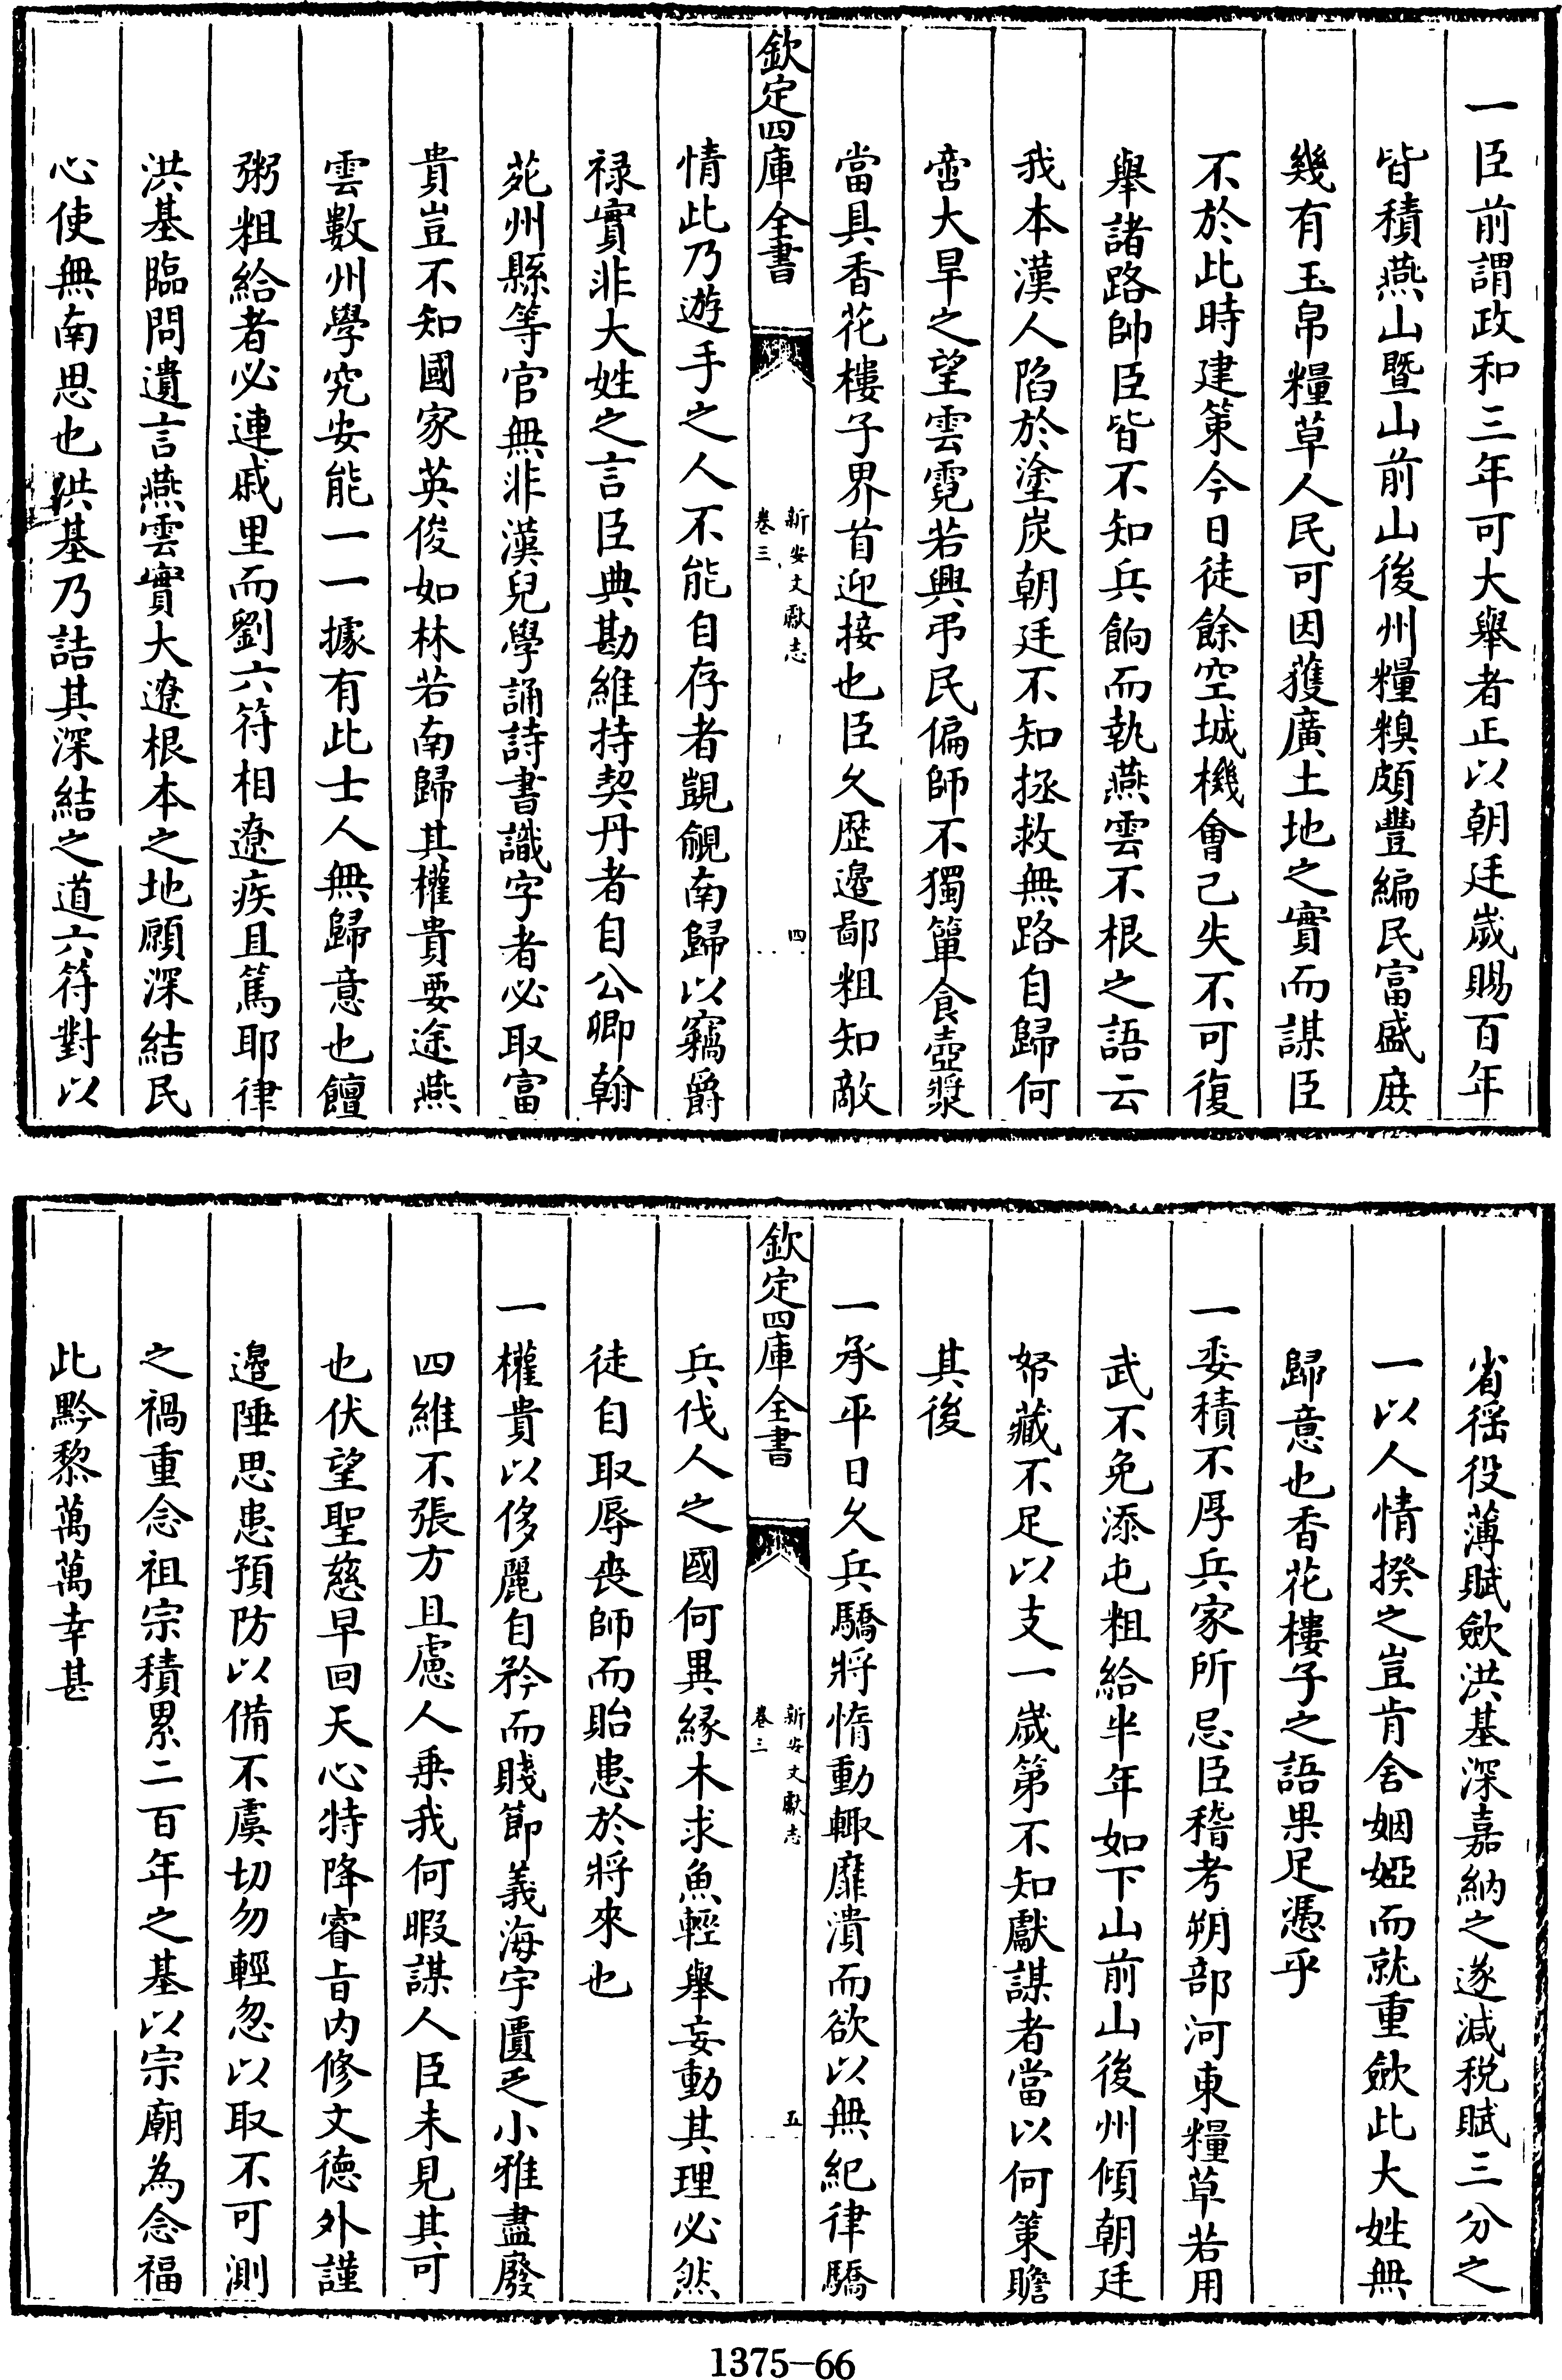 一臣前謂政和三年可大舉者正以朝廷嵗賜百年
皆積燕山暨山前山後州糧糗頗豐編民富盛庻
幾有玉帛糧草人民可因獲廣土地之實而謀臣
不於此時建策今日徒餘空城機會己失不可復
舉諸路帥臣皆不知兵餉而執燕雲不根之語云
我本漢人陷於塗炭朝廷不知拯救無路自歸何
啻大旱之望雲霓若興弔民偏師不獨簞食壺漿
當具香花樓子界首迎接也臣久歴邊鄙粗知敵
欽定四庫全書
新安文獻志
卷三
四
情此乃遊手之人不能自存者覬覦南歸以竊爵
禄實非大姓之言臣典勘維持契丹者自公卿翰
苑州縣等官無非漢兒學誦詩書識字者必取富
貴豈不知國家英俊如林若南歸其權貴要途燕
雲數州學究安能一一據有此士人無歸意也饘
粥粗給者必連戚里而劉六符相遼疾且篤耶律
洪基臨問遺言燕雲實大遼根本之地願深結民
心使無南思也洪基乃詰其深結之道六符對以
省徭役薄賦歛洪基深嘉納之遂減税賦三分之
一以人情揆之豈肯舍姻婭而就重歛此大姓無
歸意也香花樓子之語果足憑乎
一委積不厚兵家所忌臣稽考朔部河東糧草若用
武不免添屯粗給半年如下山前山後州傾朝廷
帑藏不足以支一嵗第不知獻謀者當以何策贍
其後
一承平日久兵驕將惰動輙靡潰而欲以無紀律驕
欽定四庫全書
新安文獻志
卷三
五
兵伐人之國何異縁木求魚輕舉妄動其理必然
徒自取辱丧師而貽患於將來也
一權貴以侈麗自矜而賤節義海宇匱乏小雅盡廢
四維不張方且慮人乗我何暇謀人臣未見其可
也伏望聖慈早回天心特降睿㫖内修文徳外謹
邊陲思患預防以備不虞切勿輕忽以取不可測
之禍重念祖宗積累二百年之基以宗廟為念福
此黔黎萬萬幸甚
1375—66